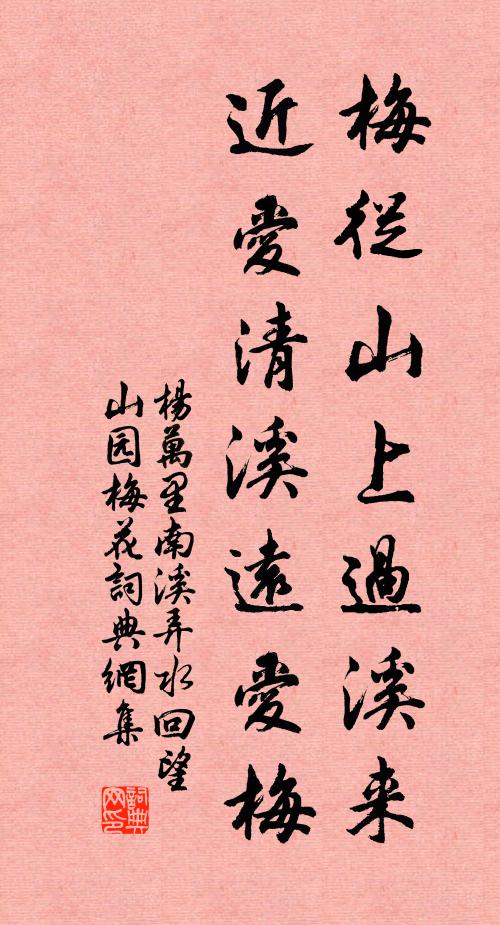 梅從山上過溪来
近愛清溪遠愛梅
楊萬里南溪弄水回望
山园梅花詞典網集
詞典網印